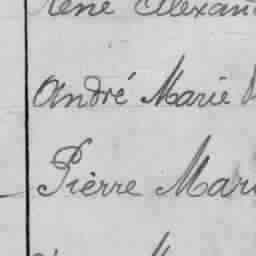 René Alexan
André Marie
Pierre Mari